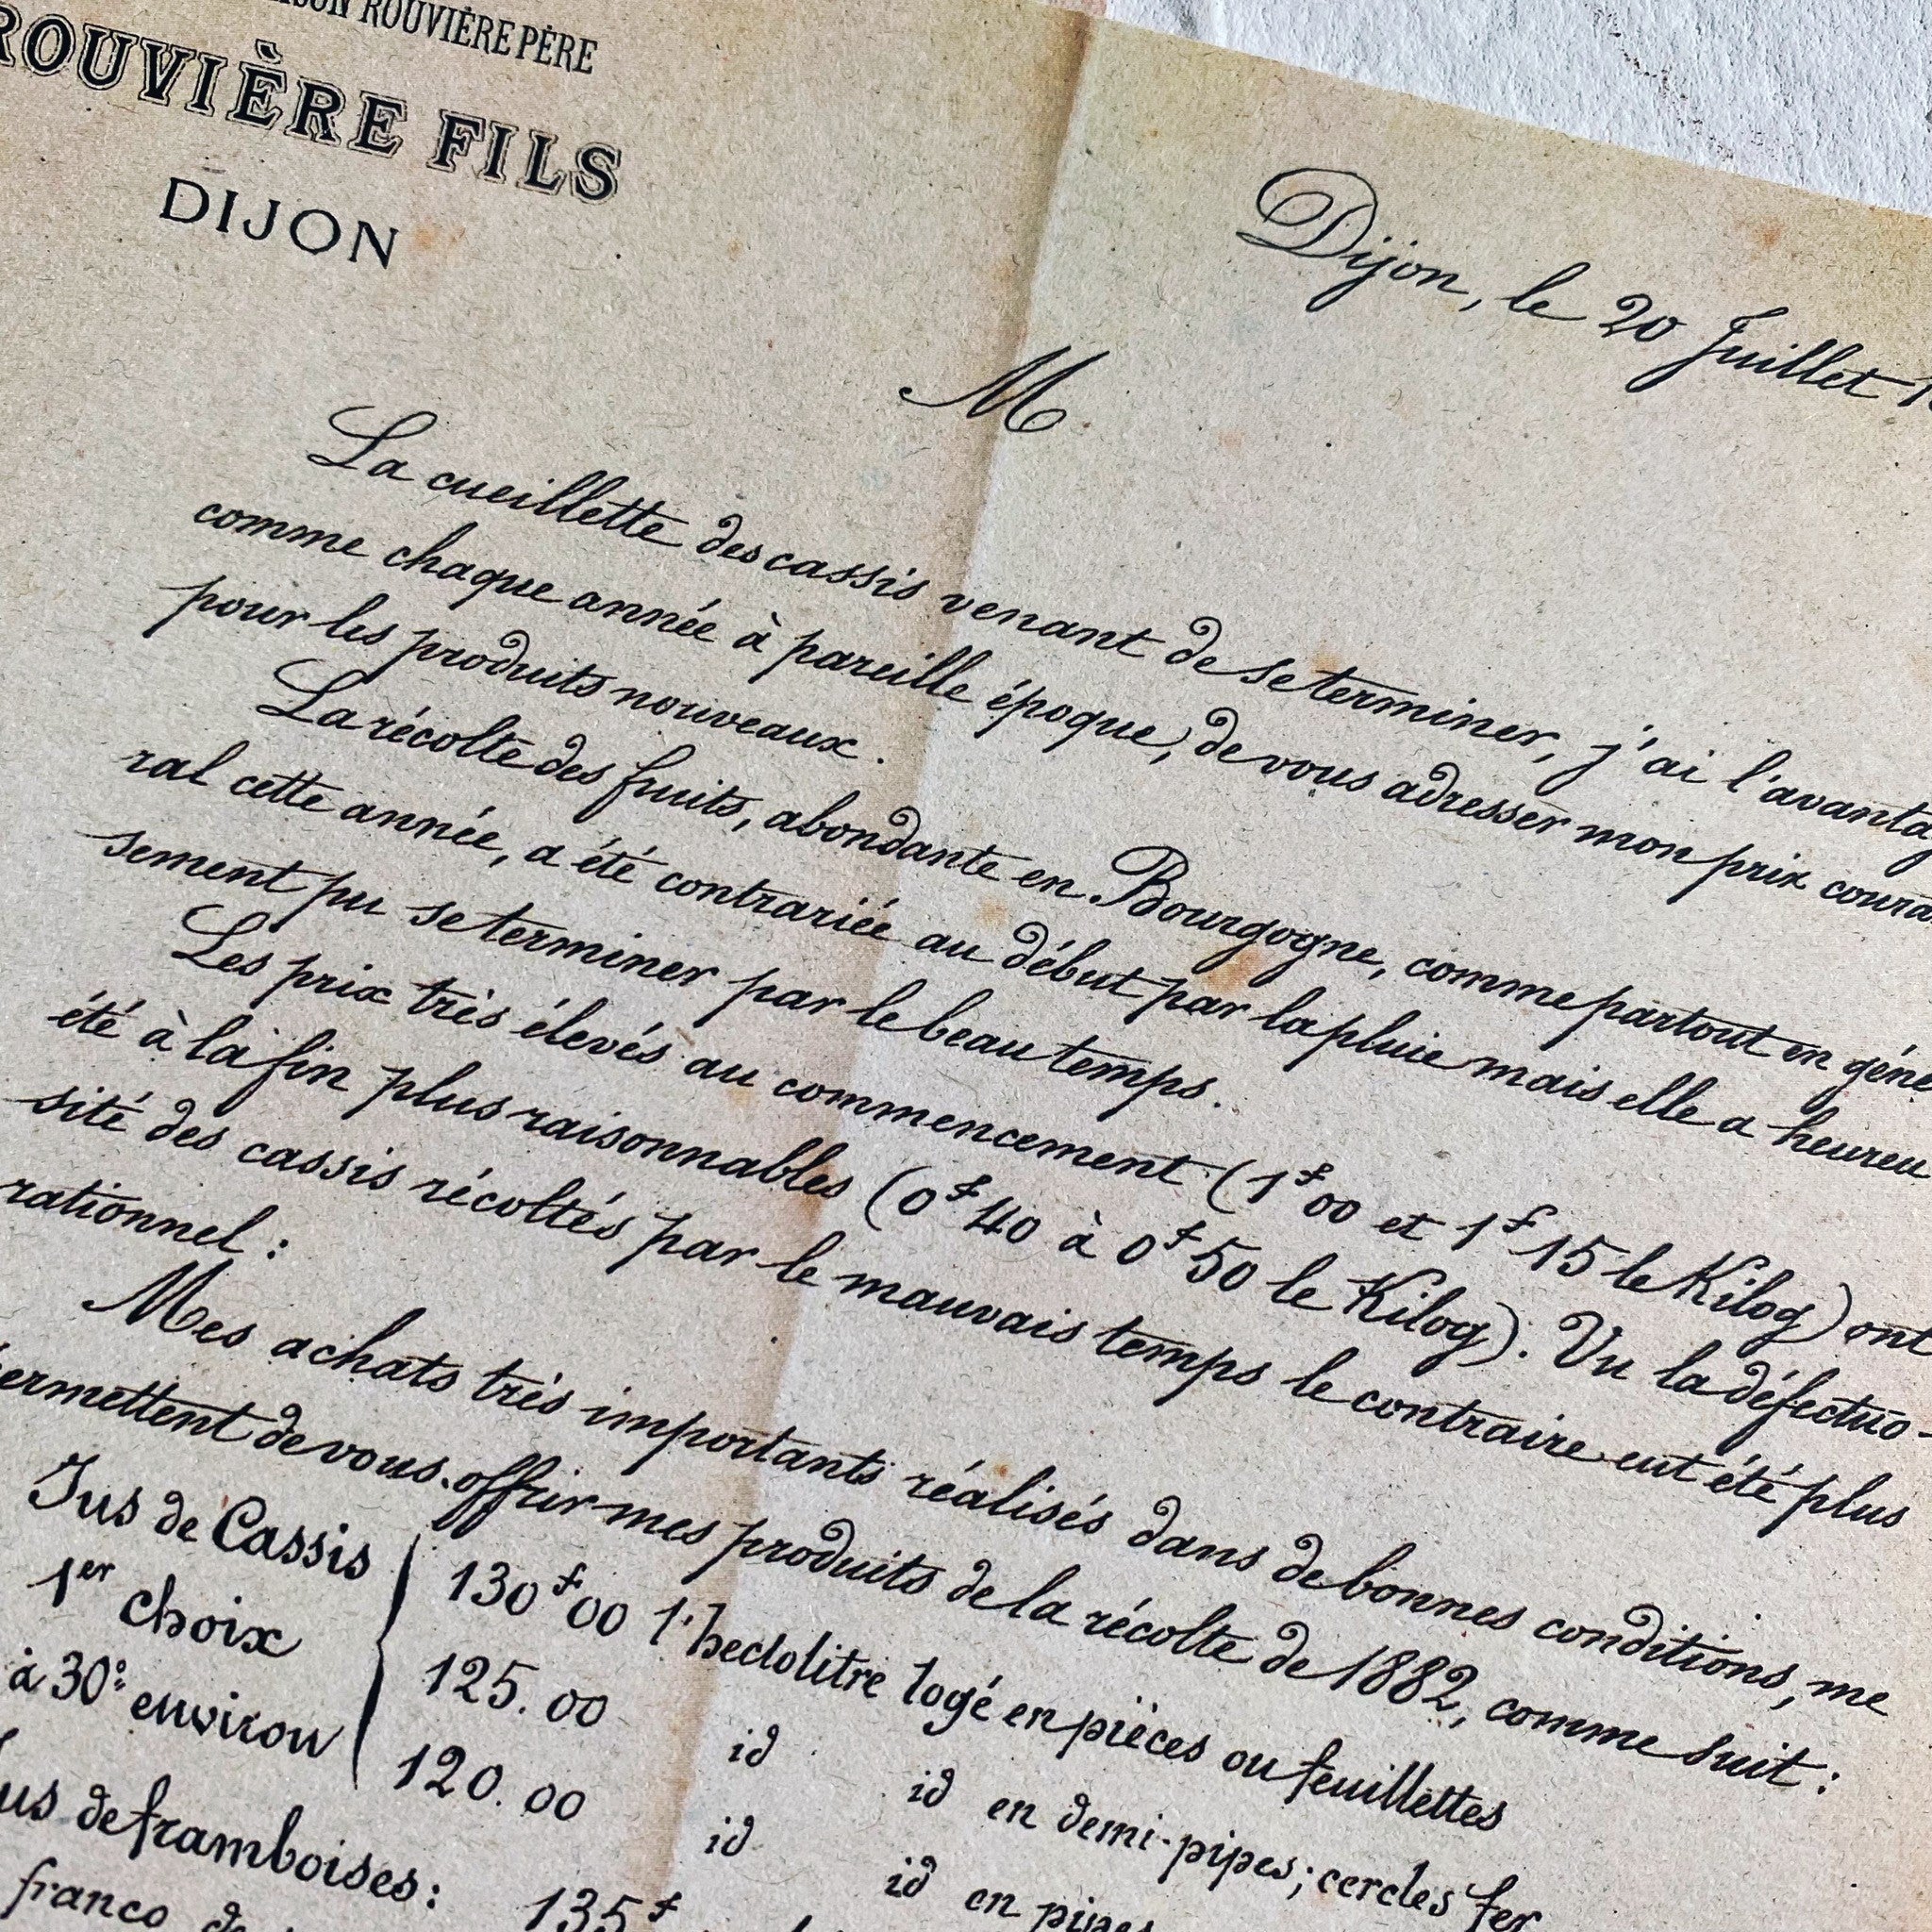 ROUVIÈRE PÈRE
ROUVIÈRE FILS
DIJON
Dijon, le 20 Juillet
M
La cueillette des cassis venant de se terminer, j'ai l'avanta
comme chaque année à pareille époque, de vous adresser mon prix coura
pour les produits nouveaux.
La récolte des fruits, abondante en Bourgogne, comme partout en géné
ral cette année, a été contrariée au début par la pluie mais elle a heureu
sement pu se terminer par le beau temps.
Les prix très élevés au commencement (1f00 et 1f15 le Kilog) ont
été à la fin plus raisonnables (0f40 à 0f50 le Kilog). Vu la défectuo-
sité des cassis récoltés par le mauvais temps le contraire eut été plus
rationnel :
Mes achats très importants réalisés dans de bonnes conditions, me
permettent de vous offrir mes produits de la récolte de 1882, comme suit :
Jus de Cassis 130f00 l'hectolitre logé en pièces ou feuillettes
1er choix 125.00 id id en demi-pipes; cercles fer
à 30° environ 120.00 id id en pipes
us de framboises : 135f
franco de